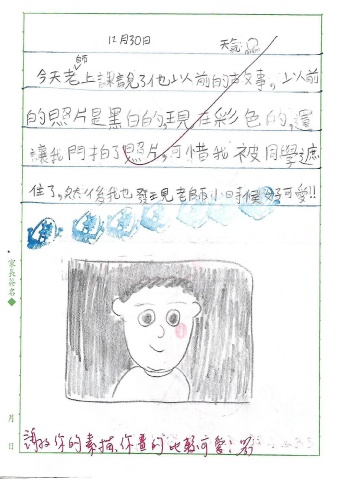 12月30日 天氣
今天老師上課說了他以前的故事。以前
的照片是黑白的,現在彩色的,還
讓我們拍了照片,可惜我被同學遮
住了。然後我也發現老師小時候好可愛!!
家長簽名
月 日
你的素描,你畫的也